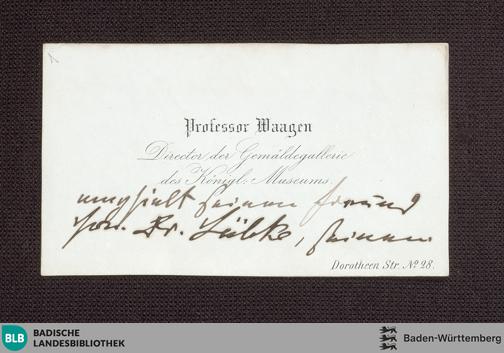 Professor Waagen
Director der Gemäldegallerie
des Königl. Museums
empfielt seinen Freund
Hrn. Dr. Lübke, seinem
Dorotheen Str. No 28.
BLB
BADISCHE
LANDESBIBLIOTHEK
Baden-Württemberg